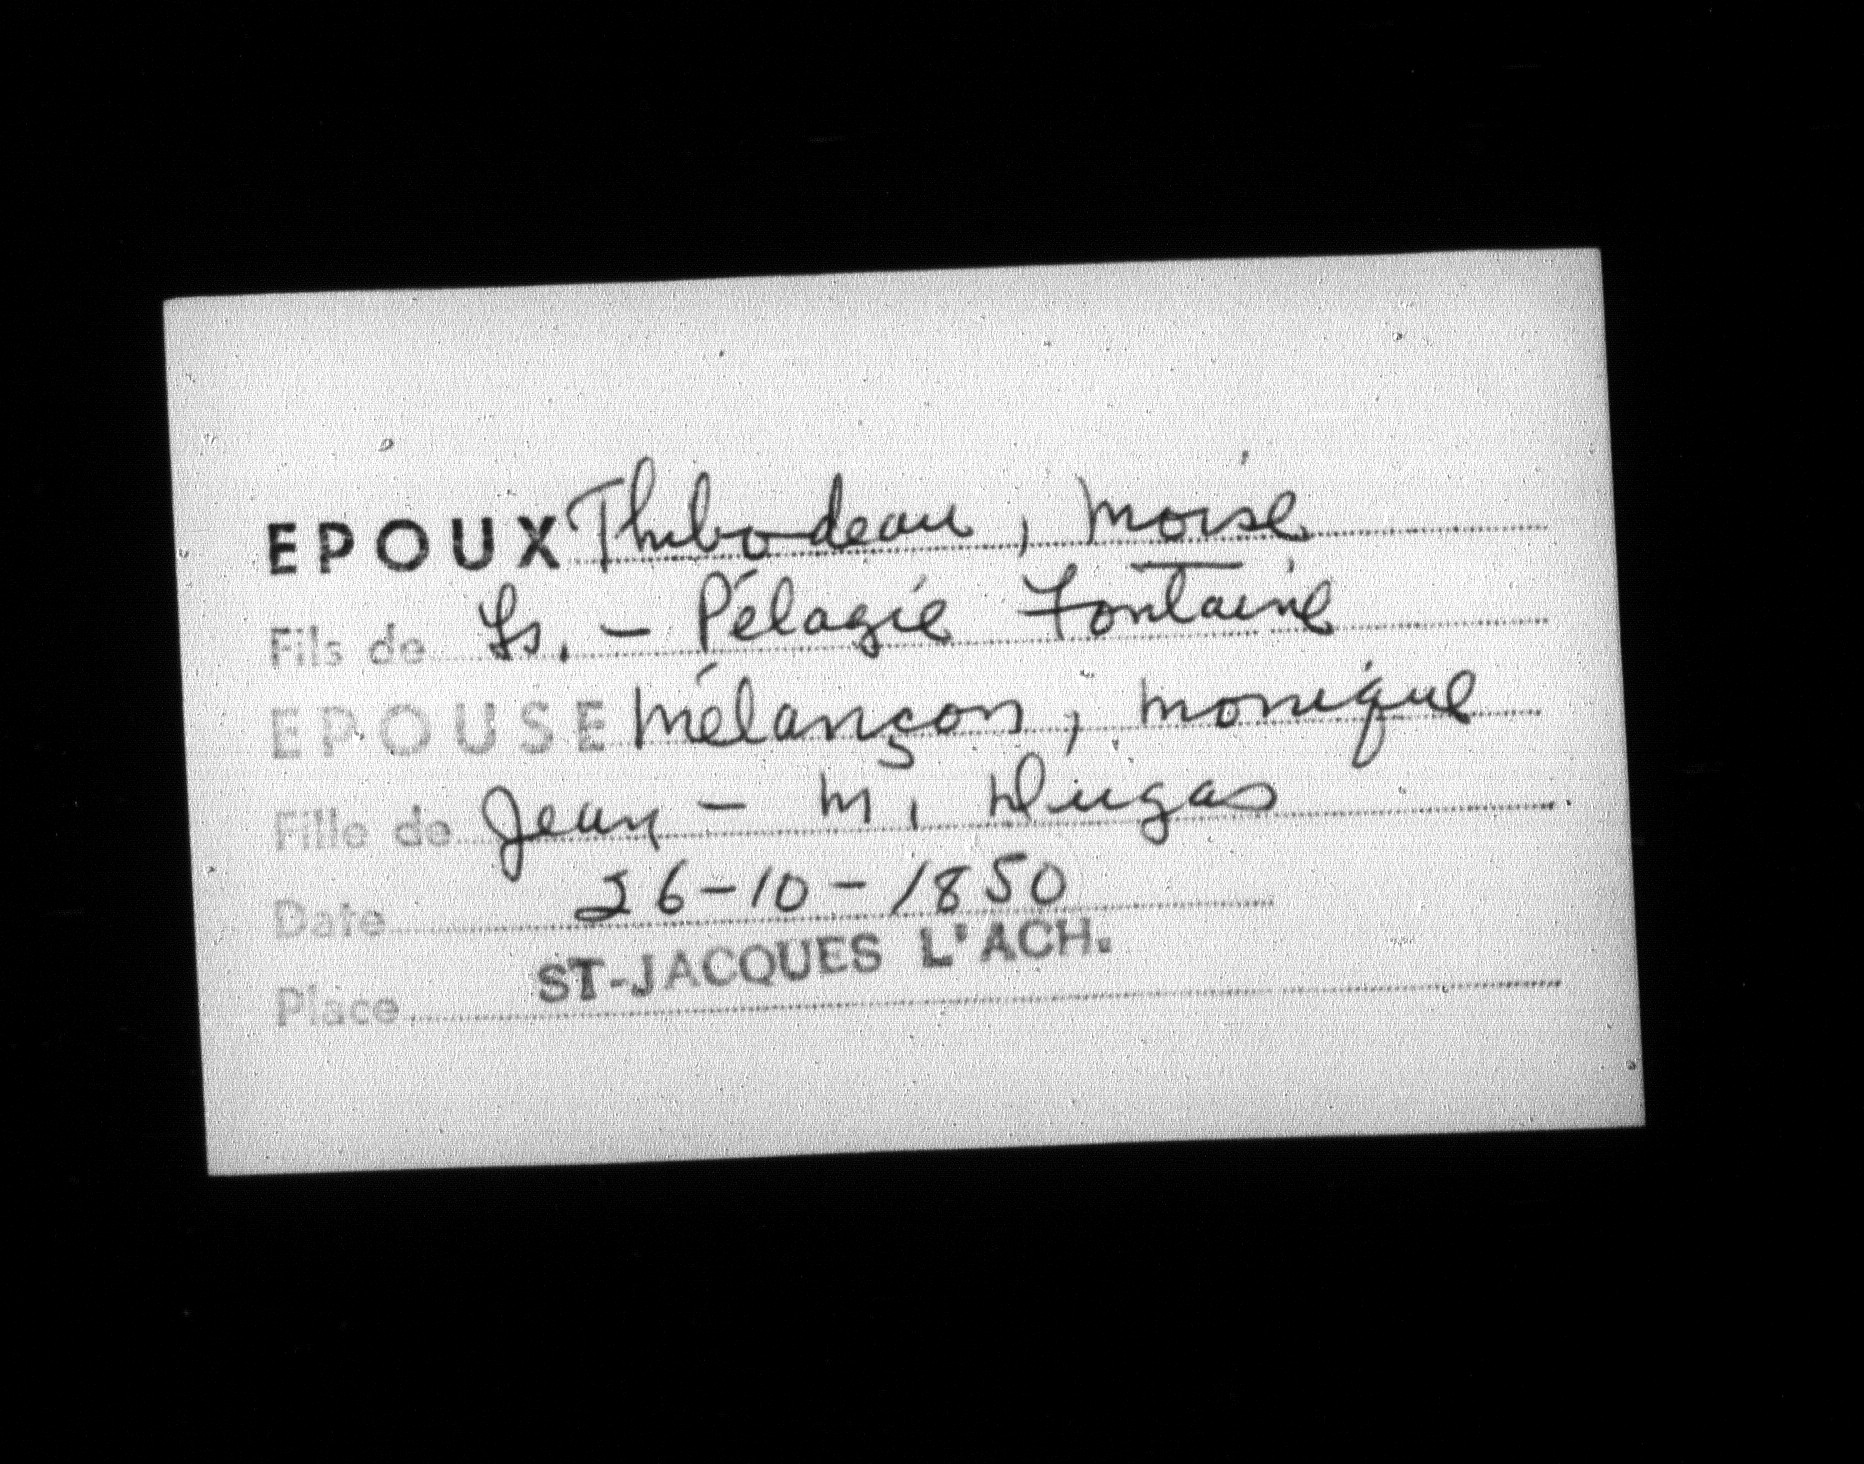 EPOUX Thibodeau, Moise
Fils de Ls. - Pélagie Fontaine
EPOUSE Mélançon, Monique
Fille de Jean - M. Dugas
Date 26-10-1850
Place ST-JACQUES L'ACH.